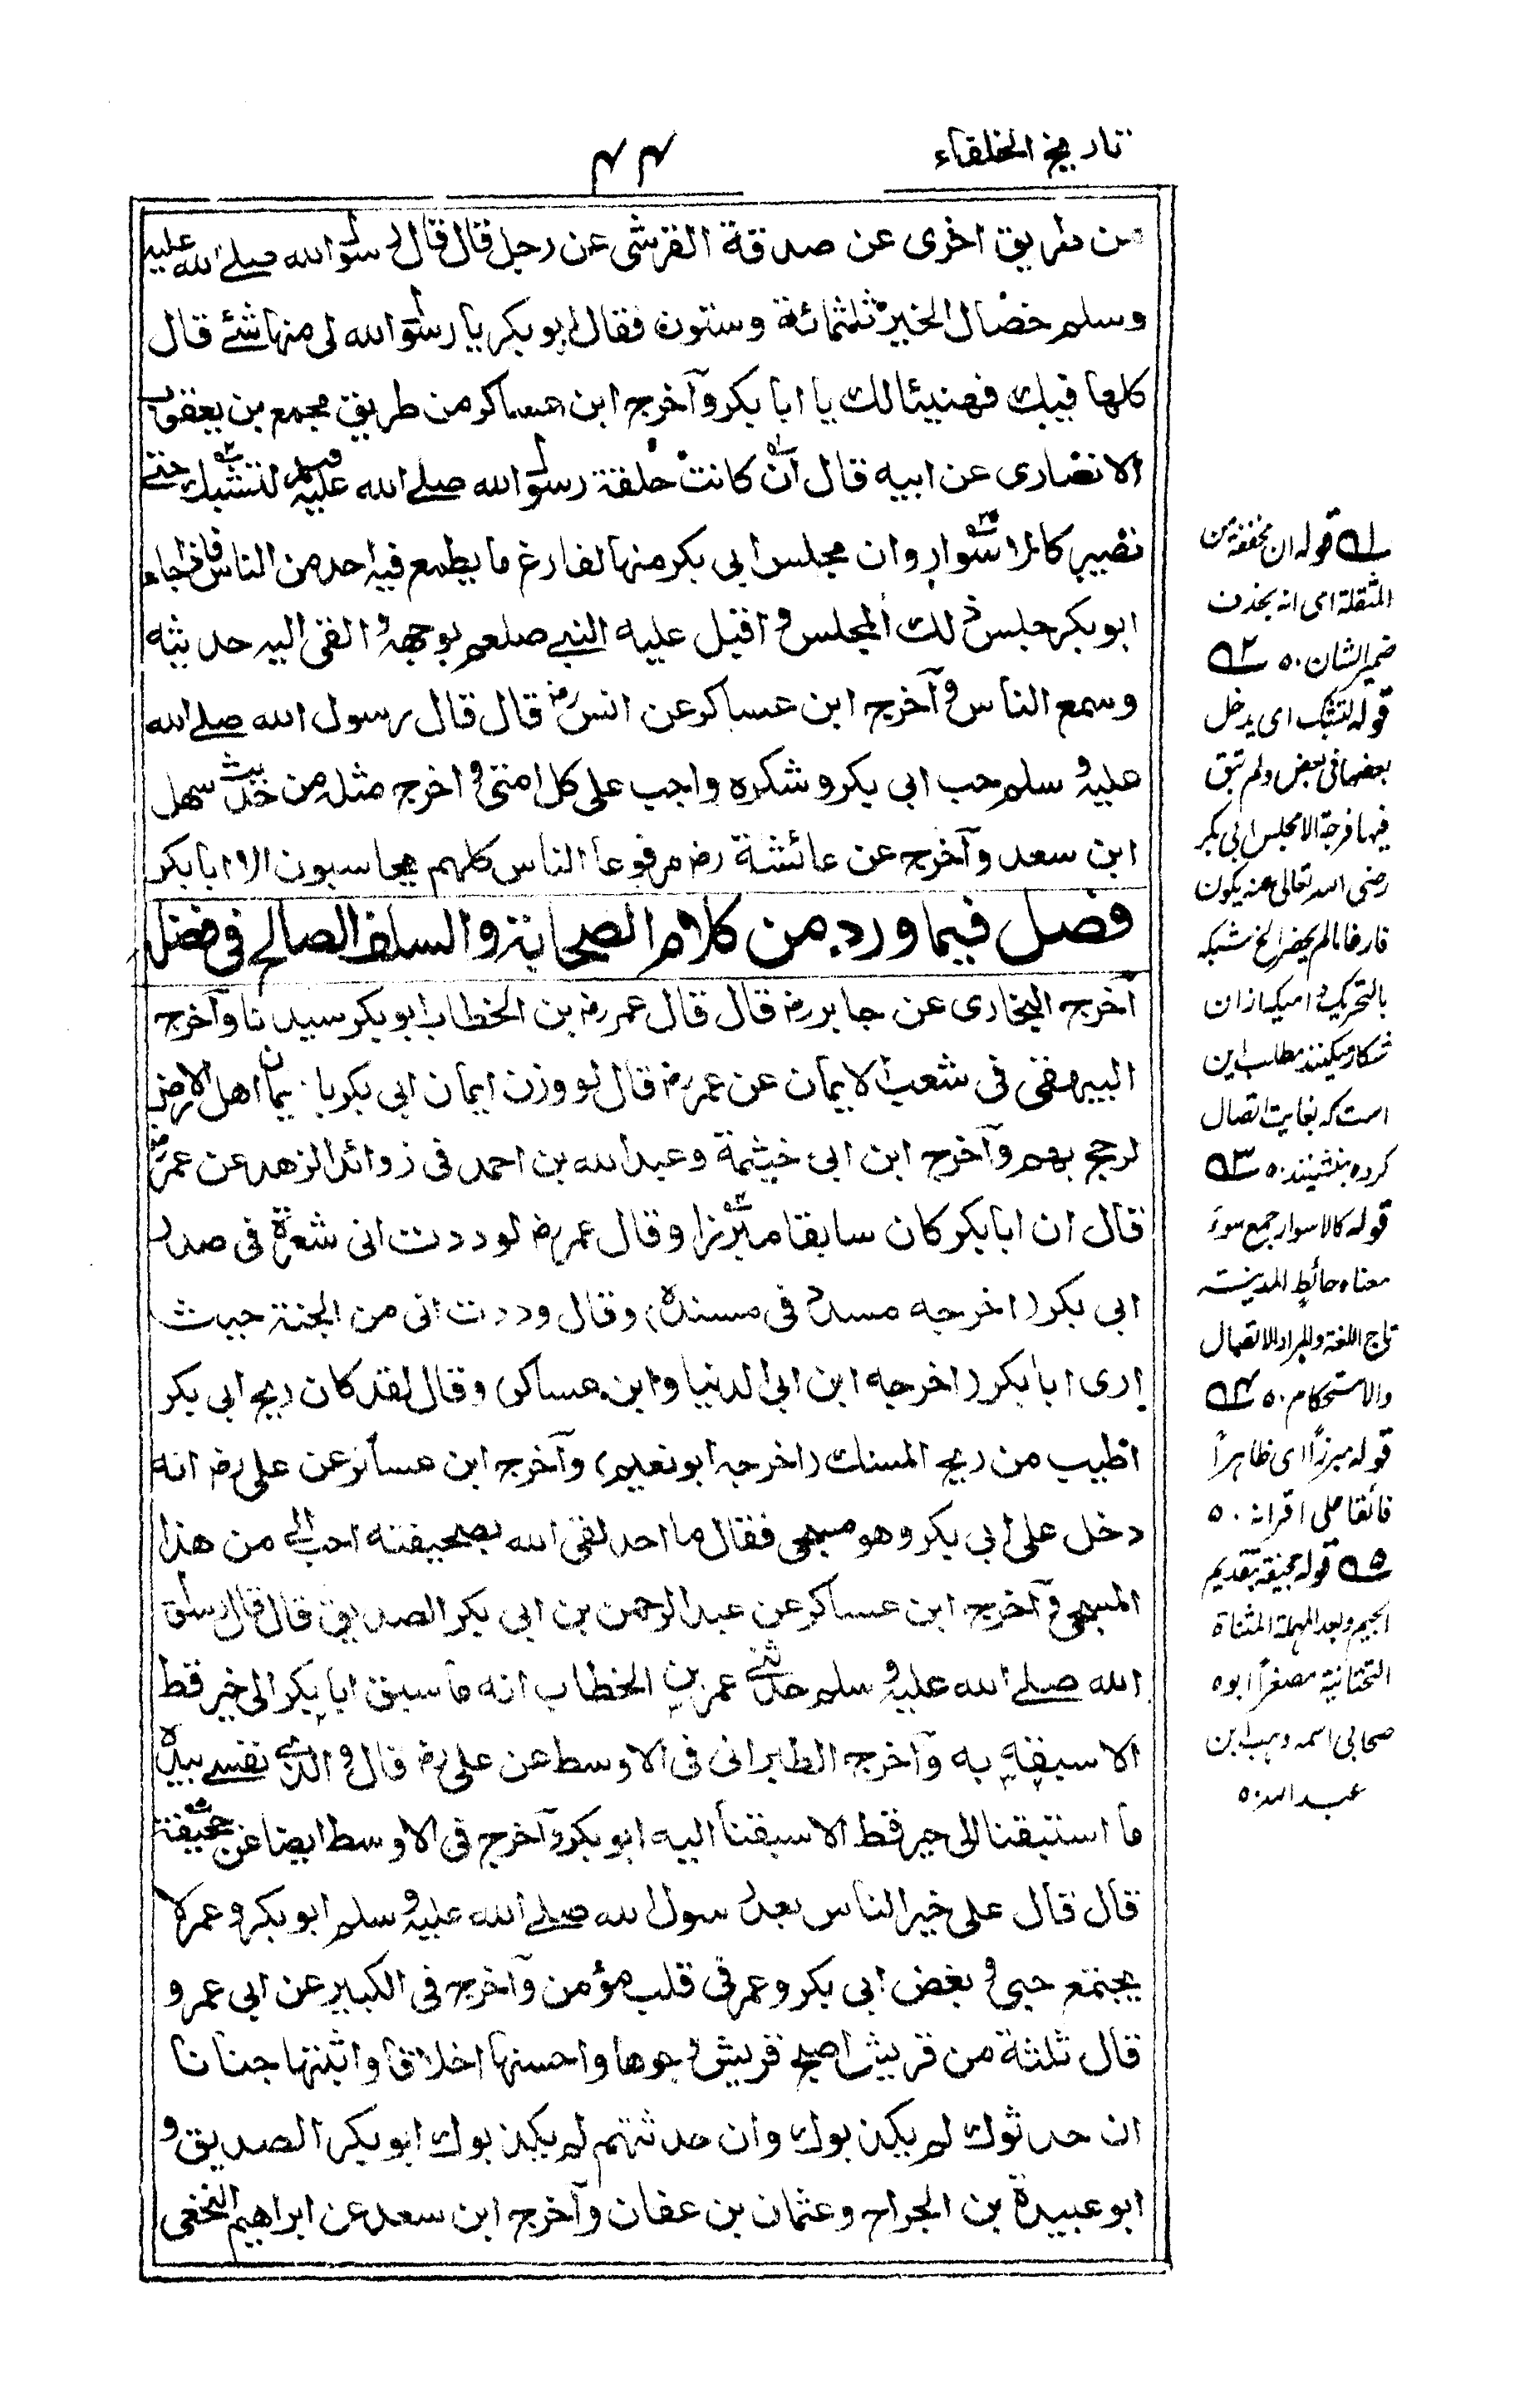 تاريخ الخلفاء
٤٤
من طريق اخرى عن صدقة القرشى عن رجل قال قال رسول الله صلے الله عليه
وسلم خصال الخير ثلثمائة وستون فقال ابو بكر يا رسول الله لى منها شئے قال
كلها فيك فهنيئا لك يا ابا بكر وآخرج ابن عساكر من طريق مجمع بن يعقوب
الانصارى عن ابيه قال ان كانت حلقة رسول الله صلے الله عليه وسلم لتشتبك حتے
تصير كالاسوار وان مجلس ابى بكر منها لفارغ ما يطمع فيه احد من الناس فاذا جاء
ابو بكر جلس ذلك المجلس واقبل عليه النبے صلعم بوجهه والقى اليه حديثه
وسمع الناس وآخرج ابن عساكر عن انس رض قال قال رسول الله صلے الله
عليه وسلم حب ابى بكر وشكره واجب على كل امتى واخرج مثله من حديث سهل
ابن سعد وآخرج عن عائشة رض مرفوعا الناس كلهم يحاسبون الا ابا بكر
فصل فيما ورد من كلام الصحابة والسلف الصالح فى فضله
آخرج البخارى عن جابر رض قال قال عمر رض بن الخطاب ابو بكر سيدنا وآخرج
البيهقى فى شعب الايمان عن عمر رض قال لو وزن ايمان ابى بكر بايمان اهل الارض
لرجح بهم وآخرج ابن ابى خيثمة وعبد الله بن احمد فى زوائد الزهد عن عمر رض
قال ان ابا بكر كان سابقا مبرزا وقال عمر رض لوددت انى شعرة فى صدر
ابى بكر (اخرجه مسدد فى مسنده) وقال وددت انى من الجنة حيث
ارى ابا بكر (اخرجه ابن ابى الدنيا وابن عساكر) وقال لقد كان ريح ابى بكر
اطيب من ريح المسك (اخرجه ابو نعيم) وآخرج ابن عساكر عن على رض انه
دخل على ابى بكر وهو مسجى فقال ما احد لقى الله بصحيفته احب الى من هذا
المسجى وآخرج ابن عساكر عن عبد الرحمن بن ابى بكر الصديق قال قال رسول
الله صلے الله عليه وسلم حدثنے عمر بن الخطاب انه ما سبق ابا بكر الى خير قط
الا سبقه به وآخرج الطبرانى فى الاوسط عن على رض قال والذى نفسے بيده
ما استبقنا الى خير قط الا سبقنا اليه ابو بكر وآخرج فى الاوسط ايضا عن جحيفة
قال قال على خير الناس بعد رسول الله صلے الله عليه وسلم ابو بكر وعمر لا
يجتمع حبى وبغض ابى بكر وعمر فى قلب مؤمن وآخرج فى الكبير عن ابى عمرو
قال ثلثة من قريش اصبح قريش وجوها واحسنها اخلاقا واثبتها جنانا
ان حدثوك لم يكذبوك وان حدثتهم لم يكذبوك ابو بكر الصديق و
ابو عبيدة بن الجراح وعثمان بن عفان وآخرج ابن سعد عن ابراهيم النخعى
١ قوله ان مخففة من
المثقلة اى انه بحذف
ضمير الشان ٥ ٢
قوله لتشتبك اى يدخل
بعضها فى بعض ولم تبق
فيها فرجة الا مجلس ابى بكر
رضى الله تعالى عنه يكون
فارغا ما لم يحضر الخ شبكه
بالتحريك اميكه ازان
شكار ميكنند مطلب اين
است كه بغايت اتصال
كرده بنشينند ٥ ٣
قوله كالاسوار جمع سور
معناه حائط المدينة
تاج اللغة والمراد الاتصال
والاستحكام ٥ ٤
قوله مبرزاً اى ظاهراً
فائقا على اقرانه ٥
٥ قوله جحيفة بتقديم
الجيم وبعد المهملة المثناة
التحتانية مصغراً ابوه
صحابى اسمه وهب ابن
عبد الله ٥